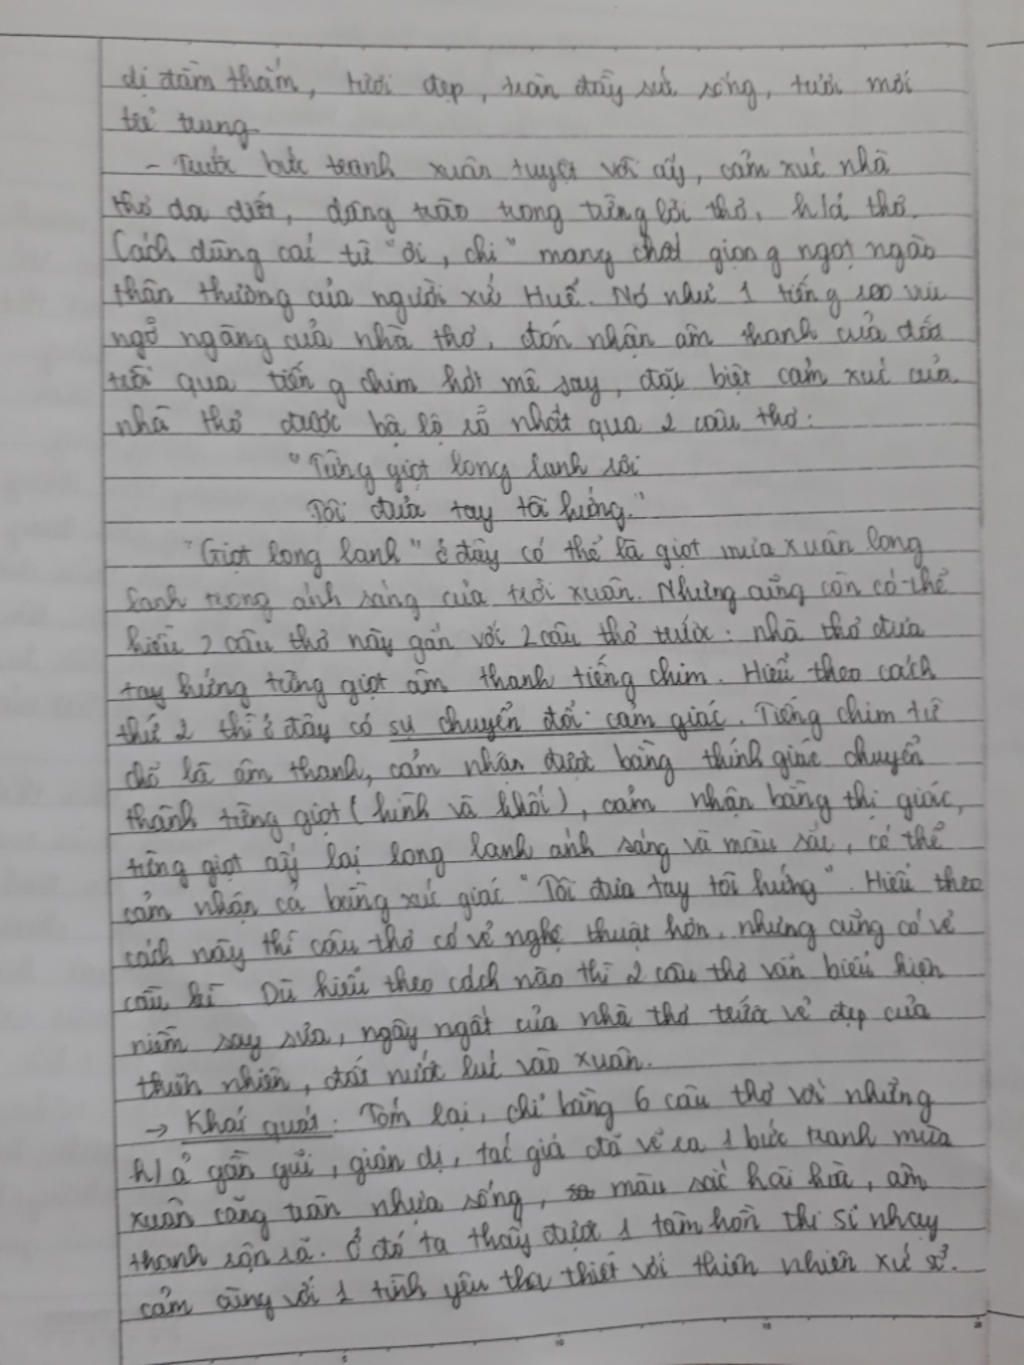 dị đằm thắm, tươi đẹp, tràn đầy sức sống, tươi mới
trẻ trung
- Trước bức tranh xuân tuyệt vời ấy, cảm xúc nhà
thơ da diết, dâng trào trong từng lời thơ, h/ả thơ.
Cách dùng các từ "ơi, chi" mang chất giọng ngọt ngào
thân thương của người xứ Huế. Nó như 1 tiếng reo vui
ngỡ ngàng của nhà thơ, đón nhận âm thanh của đất
trời qua tiếng chim hót mê say, đặc biệt cảm xúc của
nhà thơ được bộ lộ rõ nhất qua 2 câu thơ:
"Từng giọt long lanh rơi
Tôi đưa tay tôi hứng."
"Giọt long lanh" ở đây có thể là giọt mưa xuân long
lanh trong ánh sáng của trời xuân. Nhưng cũng còn có thể
hiểu 2 câu thơ này gắn với 2 câu thơ trước: nhà thơ đưa
tay hứng từng giọt âm thanh tiếng chim. Hiểu theo cách
thứ 2 thì ở đây có sự chuyển đổi cảm giác. Tiếng chim từ
chỗ là âm thanh, cảm nhận được bằng thính giác chuyển
thành từng giọt (hình và khối), cảm nhận bằng thị giác,
từng giọt ấy lại long lanh ánh sáng và màu sắc, có thể
cảm nhận cả bằng xúc giác "Tôi đưa tay tôi hứng". Hiểu theo
cách này thì câu thơ có vẻ nghệ thuật hơn, nhưng cũng có vẻ
cầu kì. Dù hiểu theo cách nào thì 2 câu thơ vẫn biểu hiện
niềm say sưa, ngây ngất của nhà thơ trước vẻ đẹp của
thiên nhiên, đất nước lúc vào xuân.
→ Khái quát: Tóm lại, chỉ bằng 6 câu thơ với những
h/ả gần gũi, giản dị, tác giả đã vẽ ra 1 bức tranh mùa
xuân căng tràn nhựa sống, màu sắc hài hòa, âm
thanh rộn rã. Ở đó ta thấy được 1 tâm hồn thi sĩ nhạy
cảm cùng với 1 tình yêu tha thiết với thiên nhiên xứ sở.
5 10 15 20